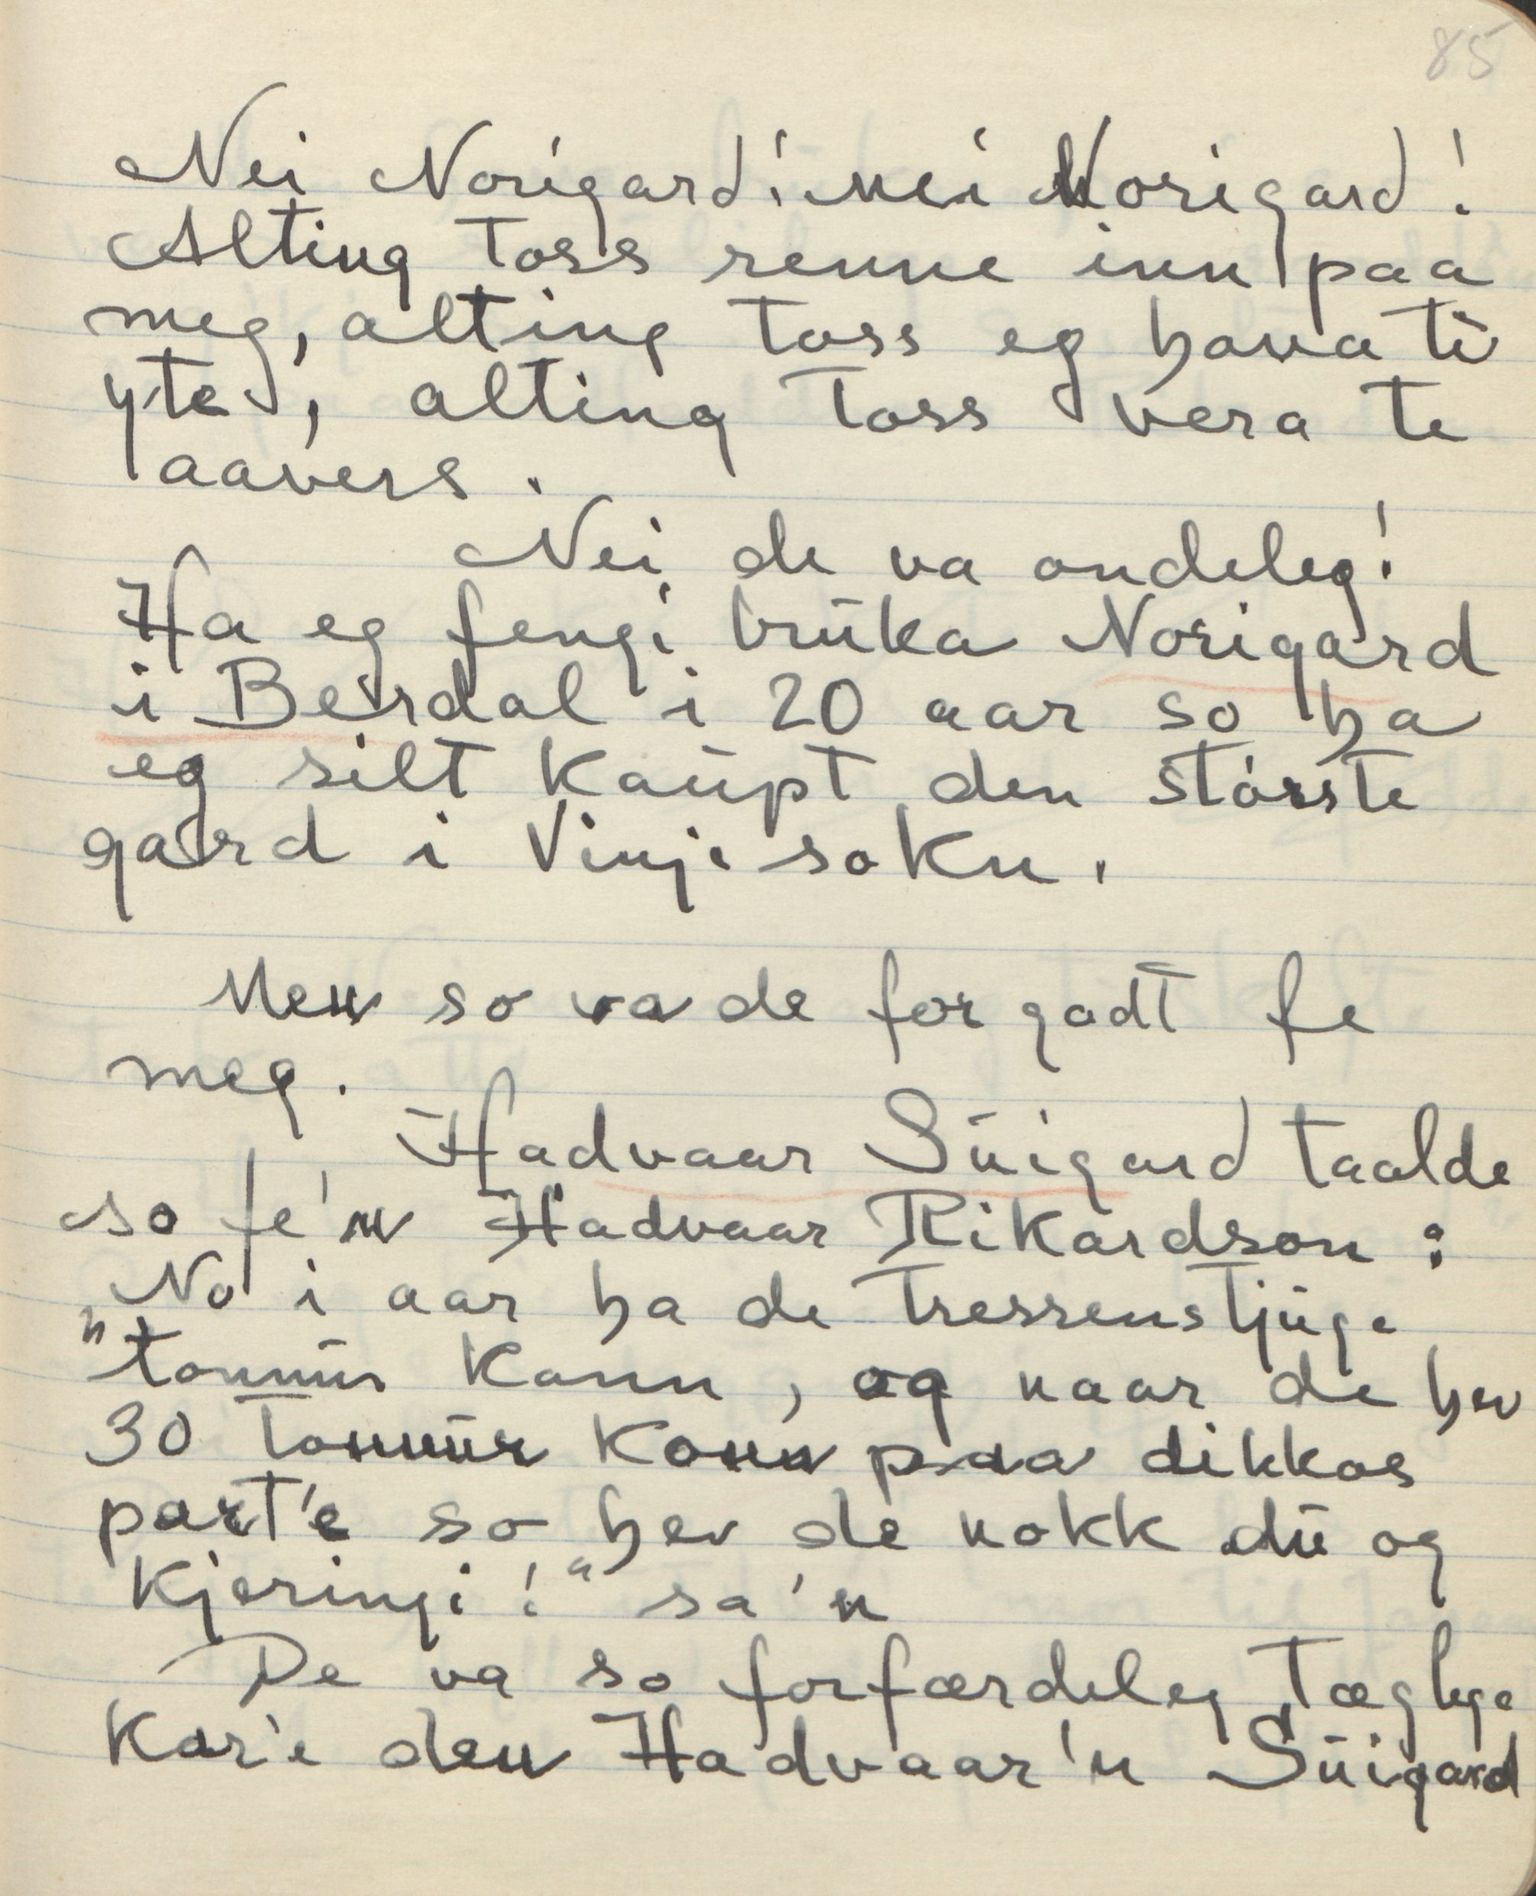 85
Nei Norigard! nei Norigard!
Alting toss renne inn paa
meg, alting toss eg hava ti
yte, alting toss vera te
aavers.
Nei de va ondeleg!
Ha eg fengi brúka Norigard
i Berdal i 20 aar so ha
eg silt kaupt den störste
gard i Vinjesokn.
Men so va de for godt fe
meg.
Hadvaar Súigard taalde
so fe'n Hadvaar Rikardson:
"No i aar ha de tressenstjúge
tonnúr konn, og naar de hev
30 tonnúr konn paa dikkos
part'e so hev de nokk dú og
Kjeringi!" sa'n
De va so forfærdeleg tæglege
kar'e den Hadvaar'n Súigard